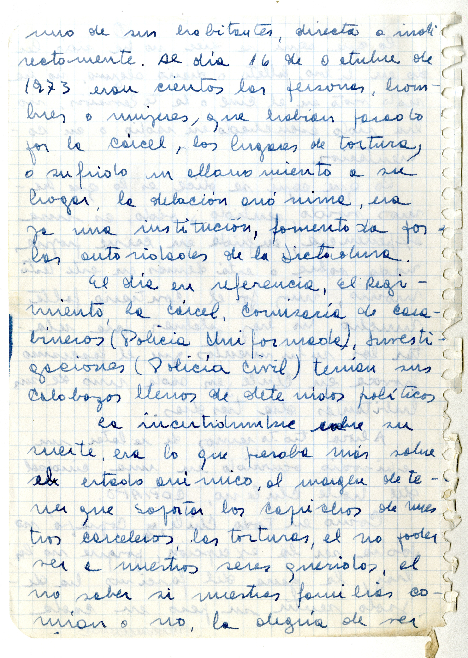 uno de sus habitantes, directa o indi
rectamente. Al día 16 de Octubre de
1973 eran cientos las personas, hom-
bres o mujeres, que habían pasado
por la cárcel, los lugares de tortura,
o sufrido un allanamiento a su
hogar, la delación anónima, era
ya una institución, fomentada por
las autoridades de la Dictadura.
El día en referencia, el Regi-
miento, la cárcel, Comisaría de cara-
bineros (Policía Uniformada), Investi-
gaciones (Policía Civil) tenían sus
calabozos llenos de detenidos políticos
La incertidumbre sobre su
suerte, era lo que pesaba más sobre
el estado anímico, al margen de te-
ner que soportar los caprichos de nues
tros carceleros, las torturas, el no poder
ver a nuestros seres queridos, el
no saber si nuestras familias co-
mían o no, la alegría de ser